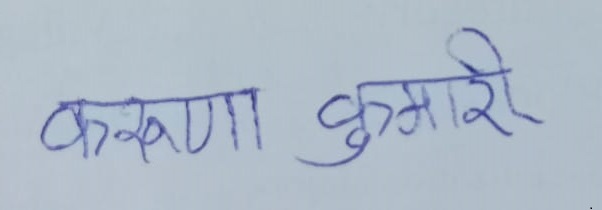 करूणा कुमारी